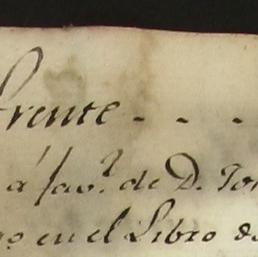 frente - - -
á fav.r de D. Jo
en el Libro de